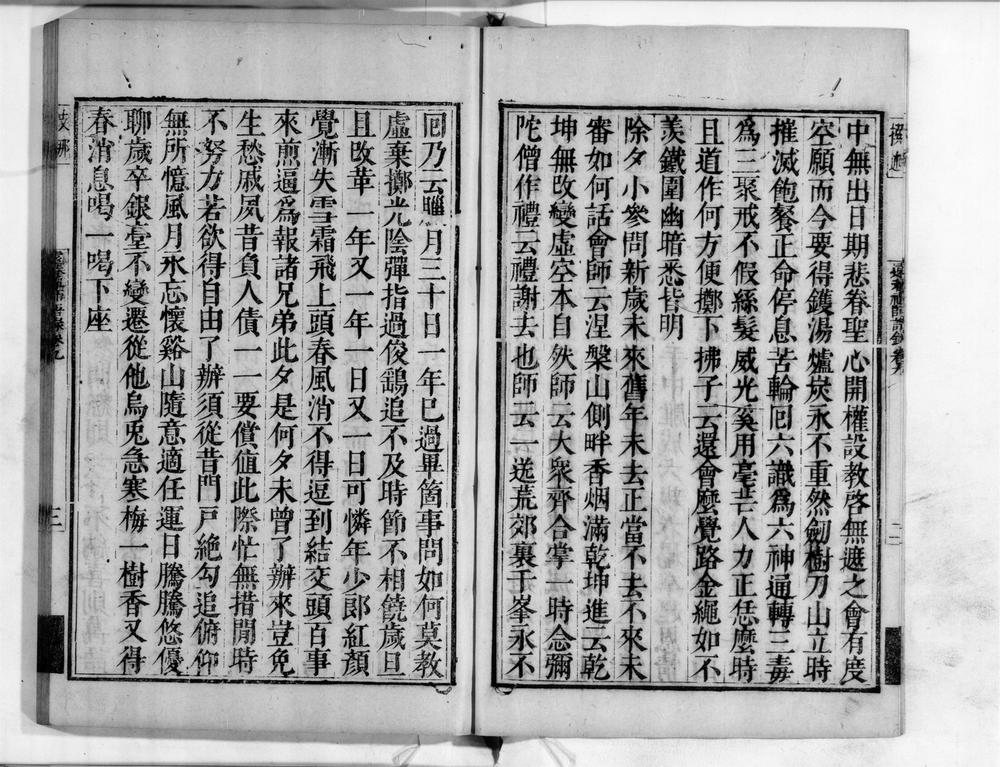 中無出日期悲眷聖心開權設教啓無遮之會有度
空願而今要得鑊湯爐炭永不重然劒樹刀山立時
摧滅飽餐正命停息苦輪囘六識爲六神通轉三毒
爲三聚戒不假絲髮威光奚用毫芒人力正恁麼時
且道作何方便擲下拂子云還會麼覺路金繩如不
羡鐵圍幽暗悉皆明
除夕小參問新歲未來舊年未去正當不去不來未
審如何話會師云涅槃山側畔香烟滿乾坤進云乾
坤無改變虛空本自然師云大衆齊合掌一時念彌
陀僧作禮云禮謝去也師云一送荒郊裏千峯永不
囘乃云臘月三十日一年已過畢箇事問如何莫教
虛棄擲光陰彈指過俊鷂追不及時節不相饒歲旦
且改革一年又一年一日又一日可憐年少郎紅顏
覺漸失雪霜飛上頭春風消不得逗到結交頭百事
來煎逼爲報諸兄弟此夕是何夕未曾了辦來豈免
生愁戚夙昔負人債一一要償值此際忙無措閒時
不努力若欲得自由了辦須從昔門戸絶勾追俯仰
無所憶風月永忘懷谿山隨意適任運日騰騰悠優
聊歲卒銀臺不變遷從他烏兎急寒梅一樹香又得
春消息喝一喝下座
二
三